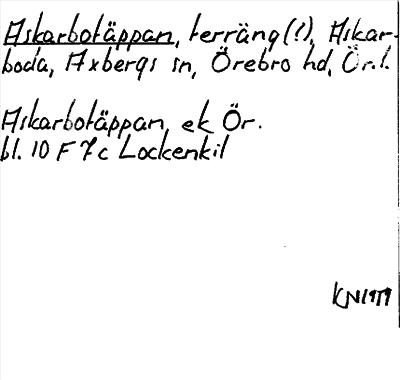 Askarbotäppan, terräng(?), Askar-
boda, Axbergs sn, Örebro hd, Ör.l.
Askarbotäppan, ek Ör.
bl. 10 F 7c Lockenkil
KN1979